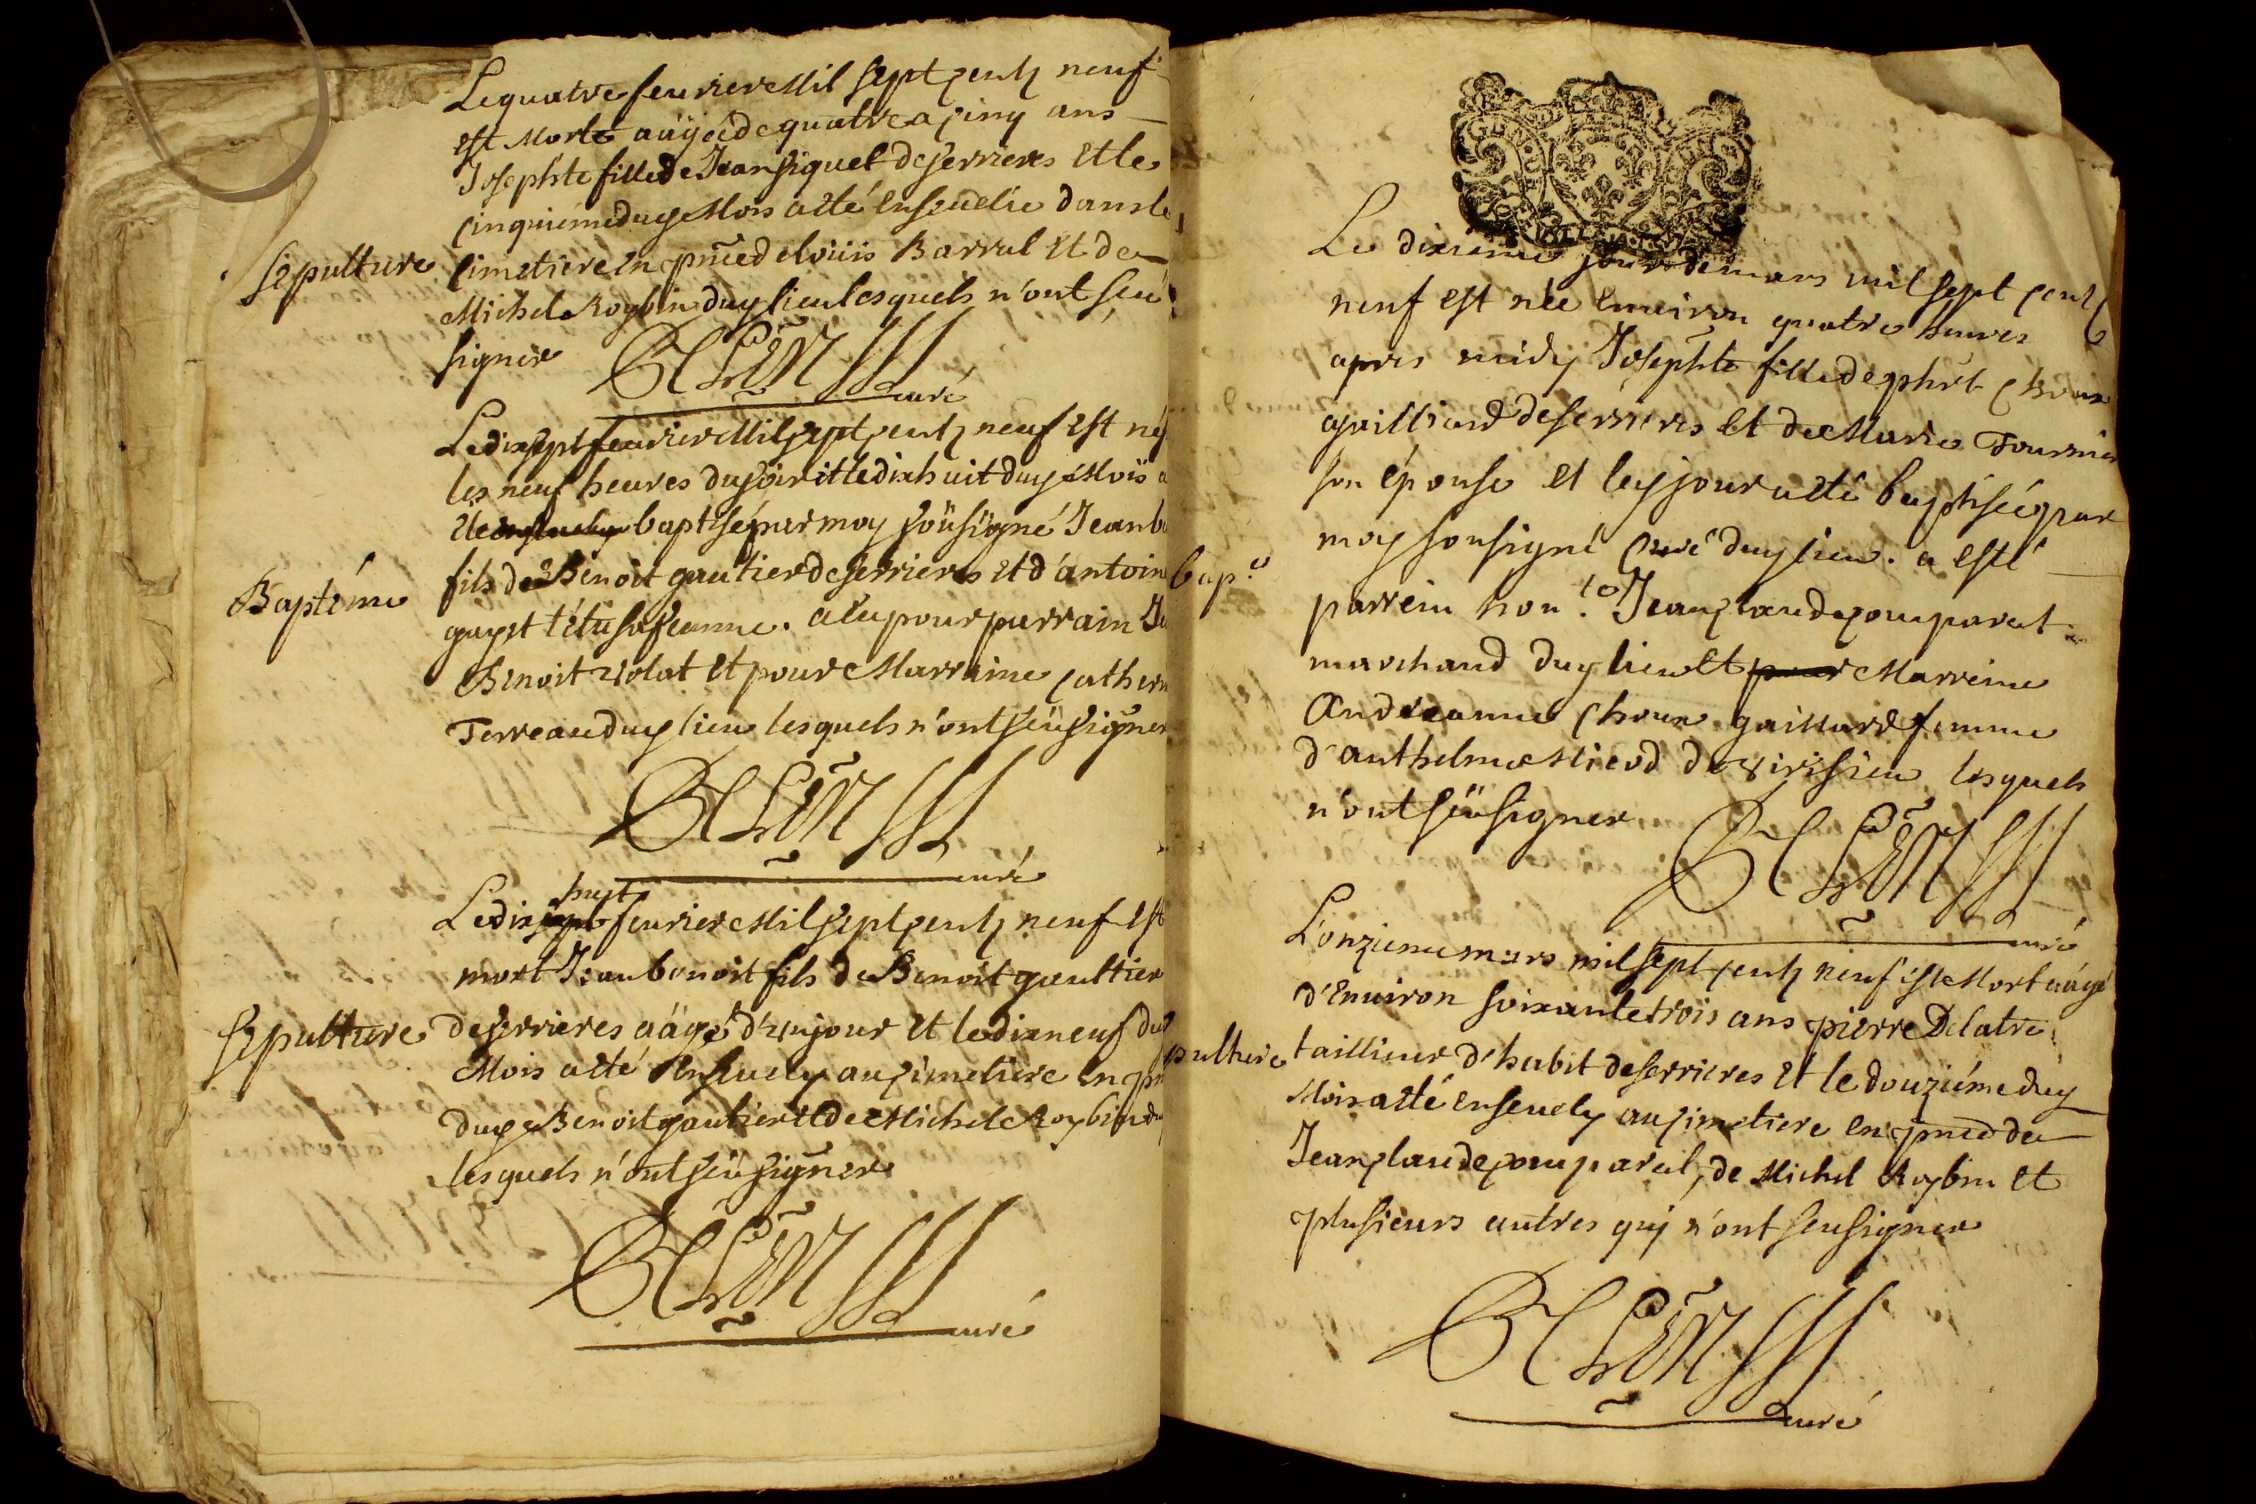 Le quatre feurier Mil sept centz neuf
est Morte aägée de quatre a cinq ans
Josephte fille de Jean siquet de serrieres et le
cinquiéme duc Mois a eté enseuelie dans le
sepulture
cimetiere en pñce de loüis Barral et de
Michel Roybin duc lieu lesquels n'ont sceu
signer
curé
Le dix sept feurier Mil sept centz neuf est né
les neuf heures du soir et le dixhuit duc Mois a
eté baptisé par moy soüsigné Jean b
Baptéme
fils de Benoit gautier de serrieres et d'antoin
gayet têtu sa femme. a eu pour parrain
Benoit violat et pour Marraine cathern
Terreau duc lieu lesquels n'ont sceu signer
curé
huit
Le dix sept feurier Mil sept centz neuf est
mort Jean benoit fils de Benoit gaultier
sepulture
de serrieres aägé d'un jour et le dixneuf duc
Mois a eté enseuely au cimetiere en pñ
duc Benoit gautier et de Michel Roybin du
lesquels n'ont sceu signer
curé
Le dixieme jour de mars mil sept centz
neuf est née enuiron quatre heures
apres midy Josephte fille de phrt Chroux
gailliard de serrieres et de Marie Fournier
son épouse et lecjour a eté baptisée par
moy sousigné Curé duc lieu. a esté
bap.e
parrein Jean claude comparat
marchand duc lieu et pour Marreine
Andréanne chroux gaillard femme
d'anthelme Mieud de virisieu lesquels
n'ont sceu signer
curé
L'onzieme mars mil sept centz neuf est Mort aägé
d'enuiron soixante trois ans pierre Delatre
pulture
taillieur d'habit de serrieres et le douziéme duc
Mois a eté enseuely au cimetiere en pñce de
Jean claude comparat, de Michel Roybin et
plusieurs autres qui n'ont sceu signer
curé